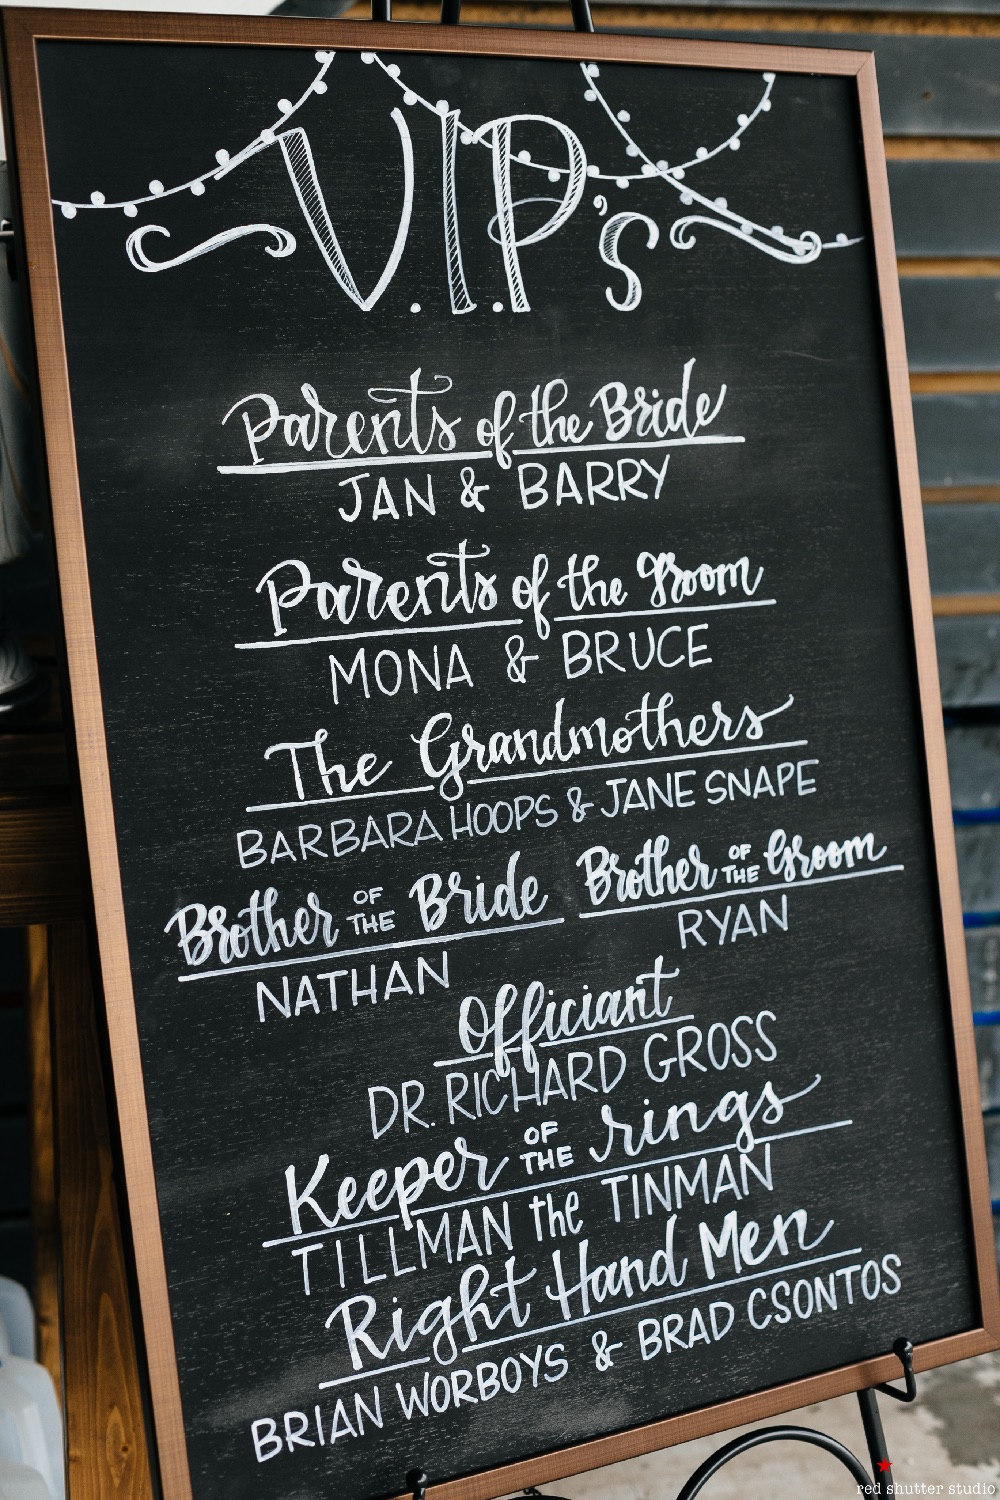 V.I.P's
Parents of the Bride
JAN & BARRY
Parents of the Groom
MONA & BRUCE
The Grandmothers
BARBARA HOOPS & JANE SNAPE
Brother OF THE Bride
NATHAN
Brother OF THE Groom
RYAN
Officiant
DR. RICHARD GROSS
Keeper OF THE rings
TILLMAN the TINMAN
Right Hand Men
BRIAN WORBOYS & BRAD CSONTOS
red shutter studio